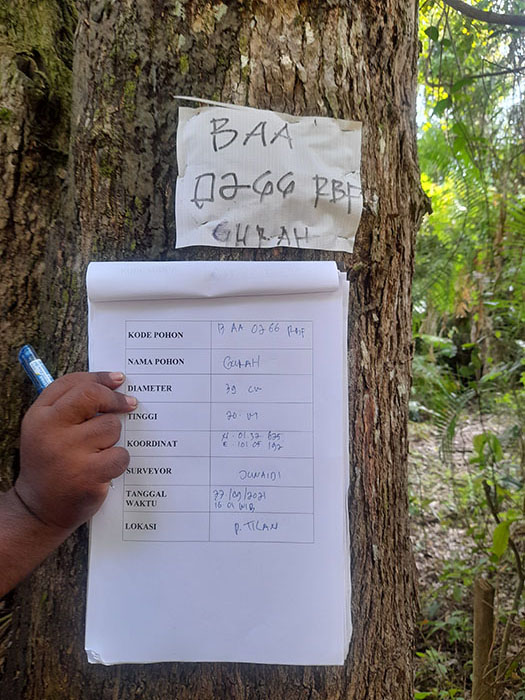 BAA
0266 RBF
GURAH
KODE POHON BAA 0266 RBF
NAMA POHON GURAH
DIAMETER 39 cm
TINGGI 20 m
KOORDINAT N. 01.37 675
E. 101 05 192
SURVEYOR JUNAIDI
TANGGAL
WAKTU 27/09/2021
16 01 WIB
LOKASI P. TILAN